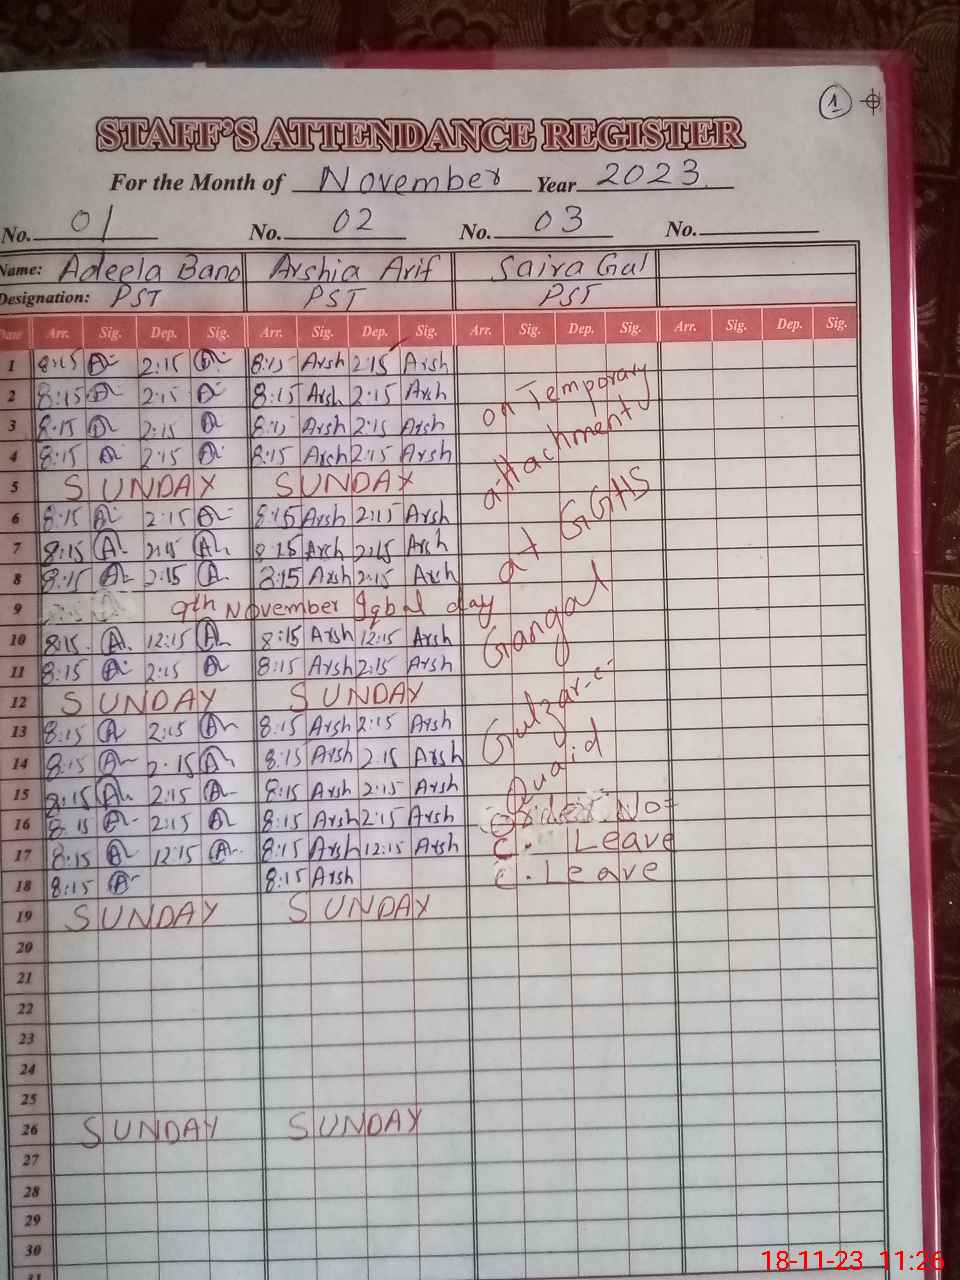 1
STAFF'S ATTENDANCE REGISTER
For the Month of November Year 2023
No. 01 No. 02 No. 03 No.
Name: Adeela Bano Arshia Arif Saira Gul
Designation: PST PST PST
Date Arr. Sig. Dep. Sig. Arr. Sig. Dep. Sig. Arr. Sig. Dep. Sig. Arr. Sig. Dep. Sig.
1 8:15 A 2:15 A 8:15 Arsh 2:15 Arsh
2 8:15 A 2:15 A 8:15 Arsh 2:15 Arsh
3 8:15 A 2:15 A 8:15 Arsh 2:15 Arsh
4 8:15 A 2:15 A 8:15 Arsh 2:15 Arsh
5 SUNDAY SUNDAY
6 8:15 A 2:15 A 8:15 Arsh 2:15 Arsh
7 8:15 A 2:15 A 8:15 Arsh 2:15 Arsh
8 8:15 A 2:15 A 8:15 Arsh 2:15 Arsh
9 9th November Iqbal day
10 8:15 A 12:15 A 8:15 Arsh 12:15 Arsh
11 8:15 A 2:15 A 8:15 Arsh 2:15 Arsh
12 SUNDAY SUNDAY
13 8:15 A 2:15 A 8:15 Arsh 2:15 Arsh
14 8:15 A 2:15 A 8:15 Arsh 2:15 Arsh
15 8:15 A 2:15 A 8:15 Arsh 2:15 Arsh
16 8:15 A 2:15 A 8:15 Arsh 2:15 Arsh
17 8:15 A 12:15 A 8:15 Arsh 12:15 Arsh
18 8:15 A 8:15 Arsh
19 SUNDAY SUNDAY
20
21
22
23
24
25
26 SUNDAY SUNDAY
27
28
29
30
31
on Temporary
attachment
at GGHS
Gangal
Gulzar-e-
Quaid
Order No
C. Leave
C. Leave
18-11-23 11:26